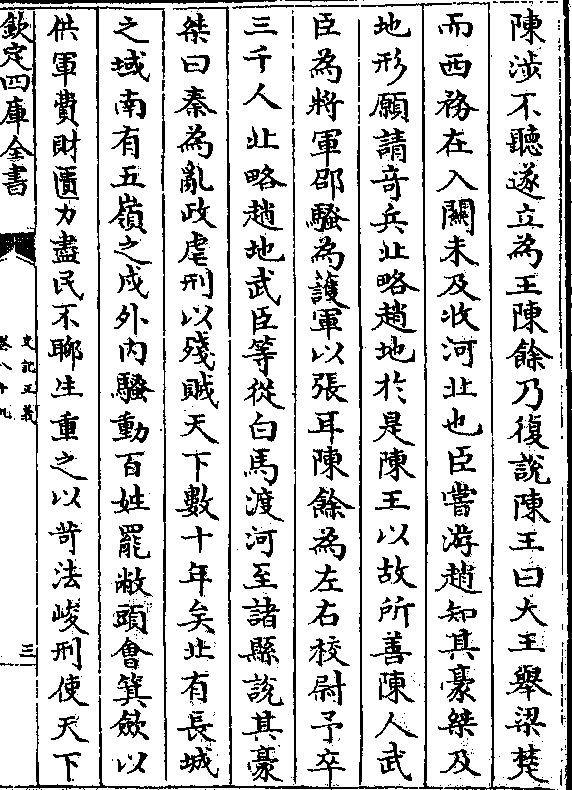 陳涉不聽遂立為王陳餘乃復說陳王曰大王舉梁楚
而西務在入關未及收河北也臣嘗游趙知其豪桀及
地形願請奇兵北略趙地於是陳王以故所善陳人武
臣為將軍邵騷為護軍以張耳陳餘為左右校尉予卒
三千人北略趙地武臣等從白馬渡河至諸縣說其豪
桀曰秦為亂政虐刑以殘賊天下數十年矣北有長城
之域南有五嶺之戍外内騷動百姓罷敝頭會箕歛以
供軍費財匱力盡民不聊生重之以苛法峻刑使天下
欽定四庫全書
史記正義
卷八十九
三